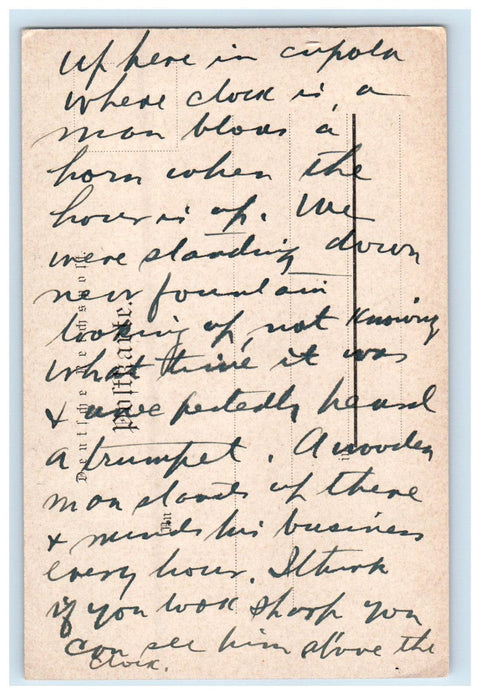 up here in cupola
where clock is, a
man blows a
horn when the
hour is up. We
were standing down
near fountain
looking up, not knowing
what time it was
& unexpectedly heard
a trumpet. A wooden
man stands up there
& minds his business
every hour. I think
if you look sharp you
can see him above the
clock.
Postkarte.
An